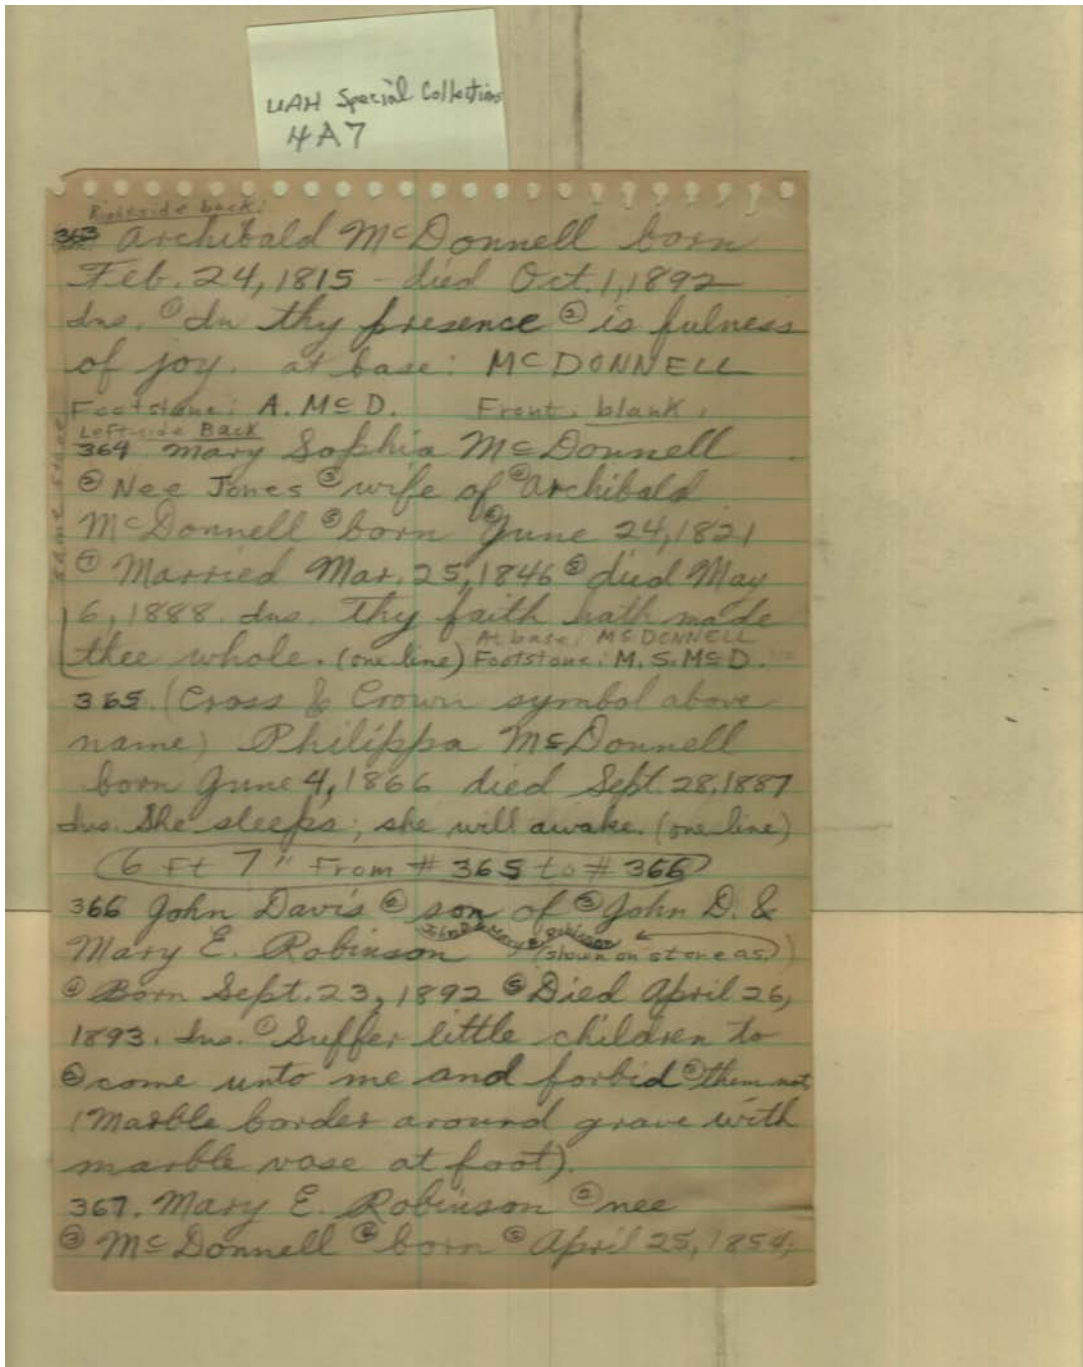 UAH Special Collections
4A7
Rightside back:
363 Archibald McDonnell born
Feb. 24, 1815 - died Oct. 1, 1892
Ins. ① In thy presence ② is fulness
of joy. at base: MCDONNELL
Footstone: A. McD. Front: blank.
Left side Back
364 Mary Sophia McDonnell
② Nee Jones ③ wife of ④ Archibald
McDonnell ⑤ born ⑥ June 24, 1821
⑦ Married Mar. 25, 1846 ⑧ died May
6, 1888. Ins. Thy faith hath made
thee whole. (one line) At base: MCDONNELL
Footstone: M. S. McD.
same stone
365. (Cross & Crown symbol above
name) Philippa McDonnell
born June 4, 1866 died Sept. 28, 1887
Ins. She sleeps; she will awake. (one line)
6 Ft 7" From # 365 to # 366
366 John Davis ② son of ③ John D. &
Mary E. Robinson (shown on stone as)
John D. & Mary E. Robinson
④ Born Sept. 23, 1892 ⑤ Died April 26,
1893. Ins. ① Suffer little children to
② come unto me and forbid ③ them not
(Marble border around grave with
marble vase at foot).
367. Mary E. Robinson ② nee
③ McDonnell ④ born ⑤ April 25, 1854;